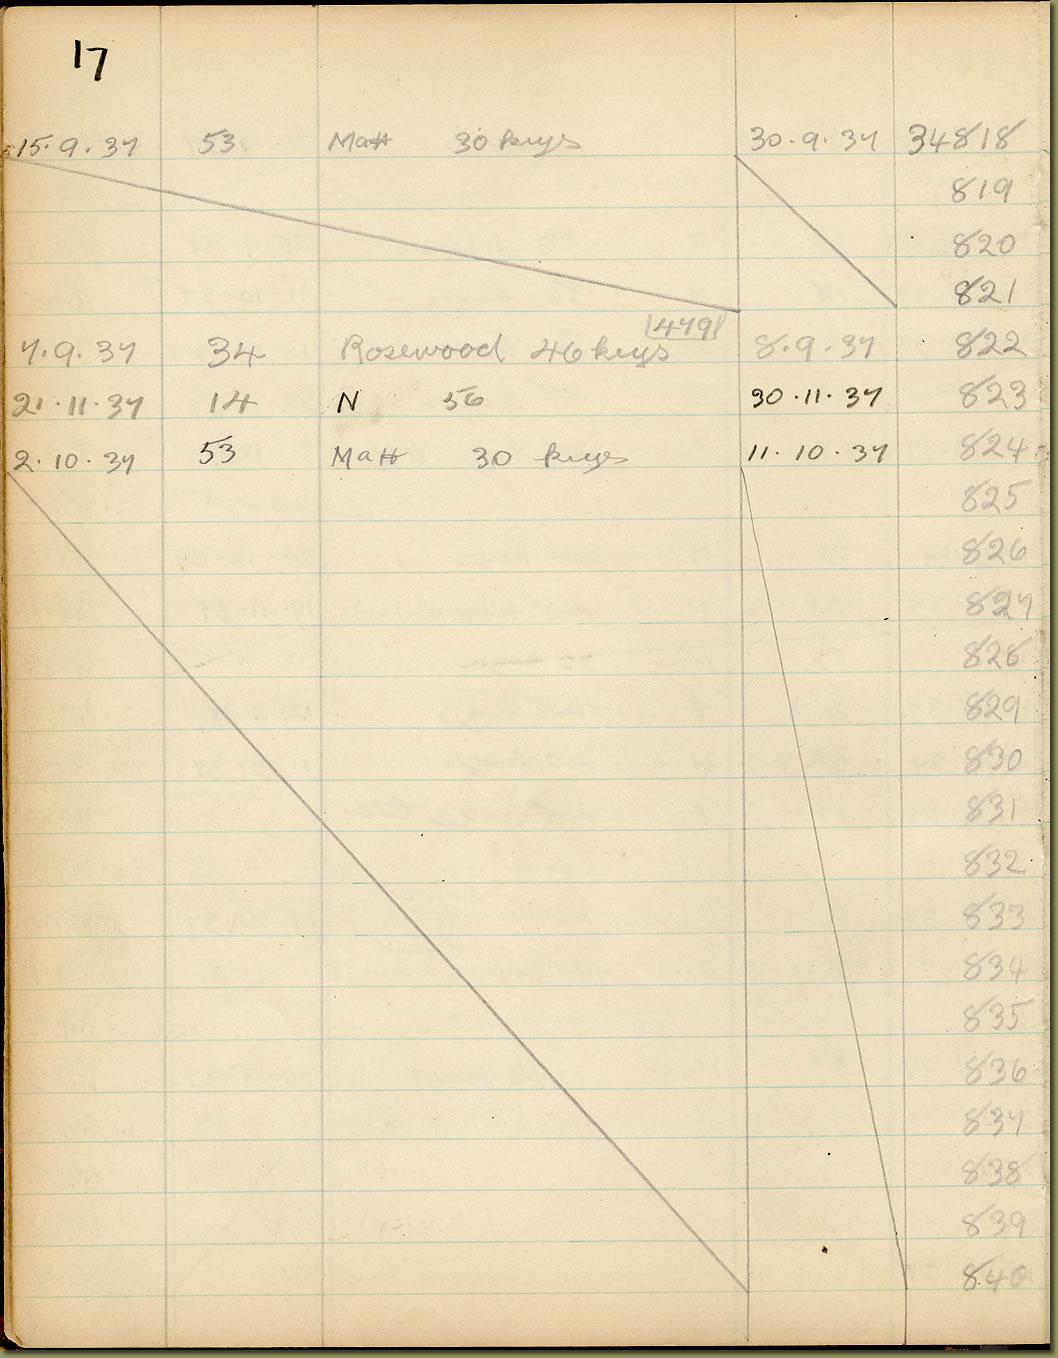 17
15.9.37 53 Matt 30 keys 30.9.37 34818
819
820
821
4791
7.9.37 34 Rosewood 46 keys 8.9.37 822
21.11.37 14 N 56 30.11.37 823
2.10.37 53 Matt 30 keys 11.10.37 824
825
826
827
828
829
830
831
832
833
834
835
836
837
838
839
840